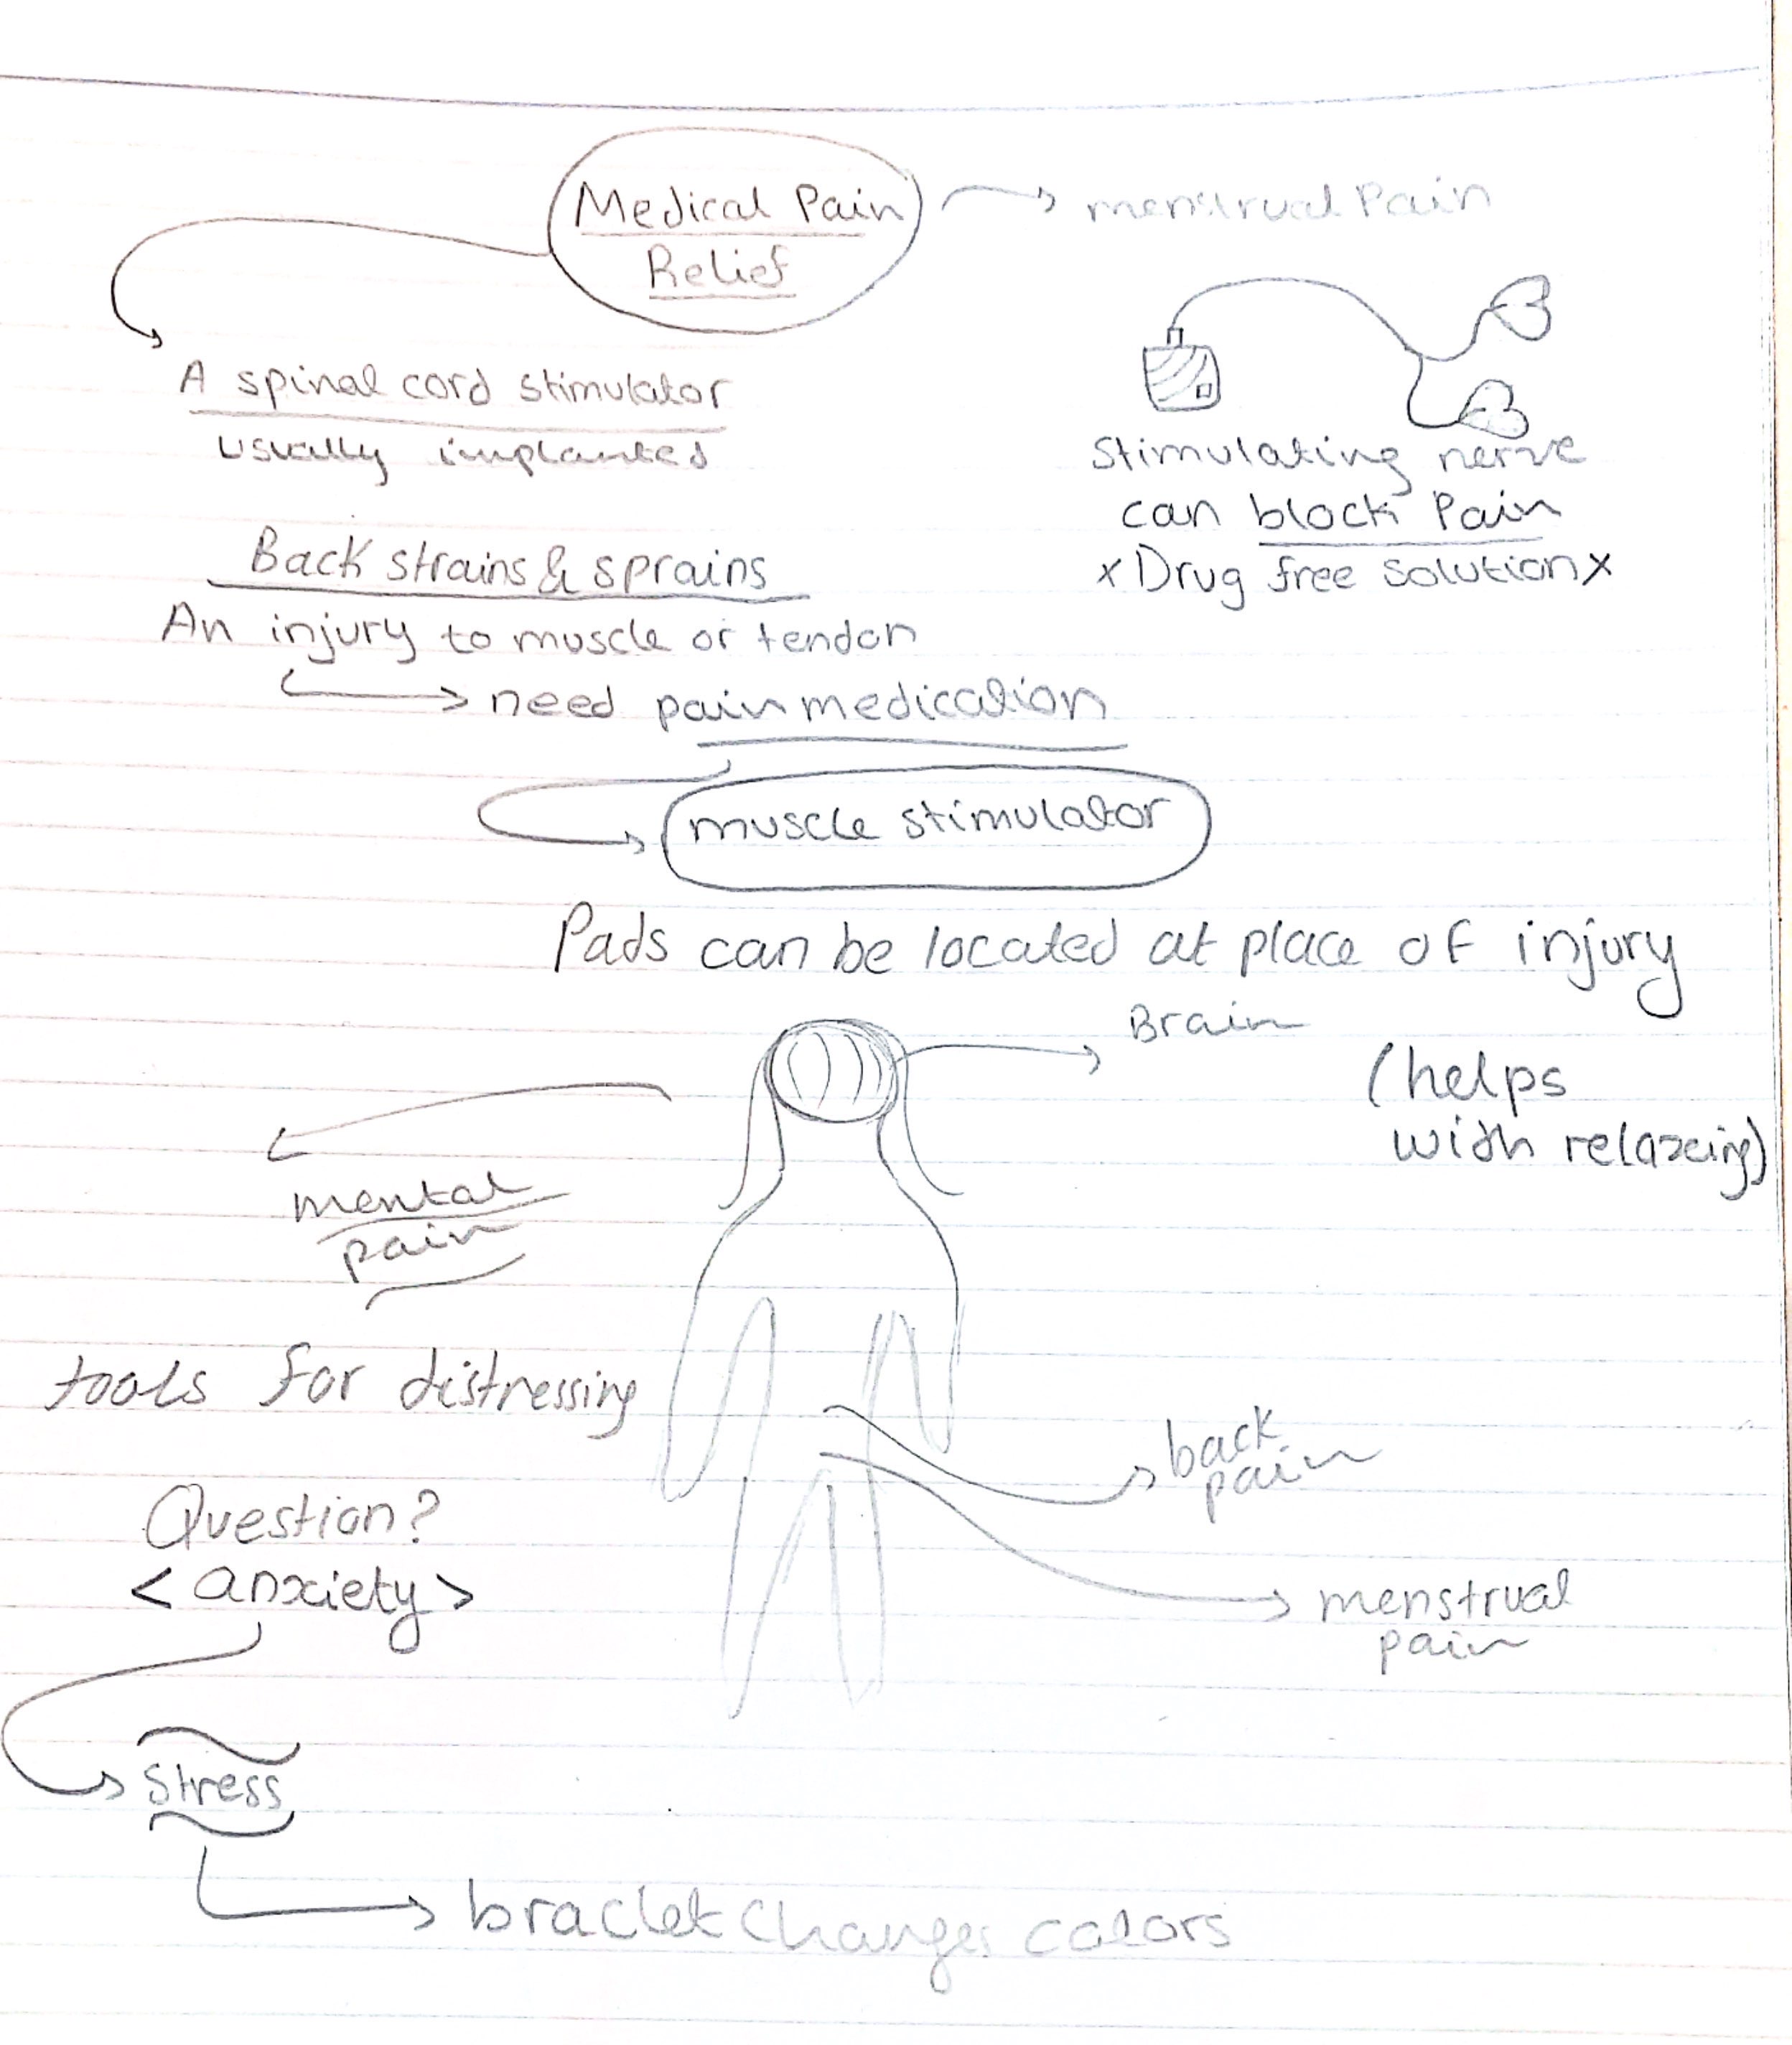 Medical Pain
Relief
menstrual Pain
A spinal cord stimulator
usually implanted
stimulating nerve
can block Pain
x Drug free solution x
Back strains & sprains
An injury to muscle or tendon
need pain medication
muscle stimulator
Pads can be located at place of injury
Brain
(helps
with relaxeing)
mental
pain
tools for distressing
back
pain
Question?
< anxiety >
menstrual
pain
stress
braclet changes colors